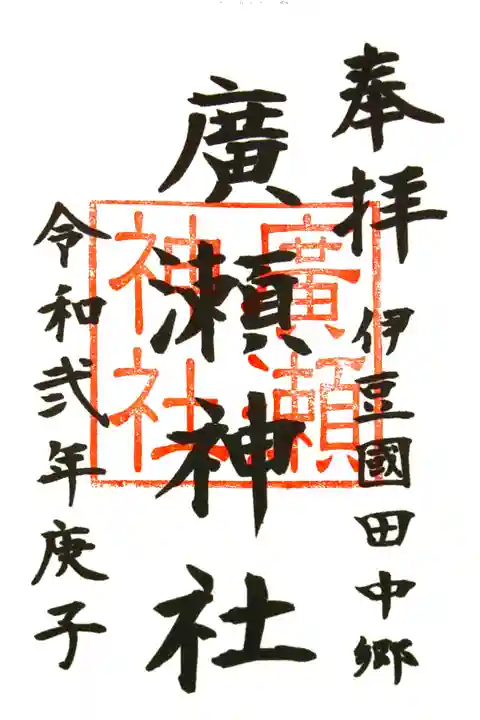 奉拝
伊豆國田中郷
廣瀬神社
廣瀬
神社
令和弐年庚子